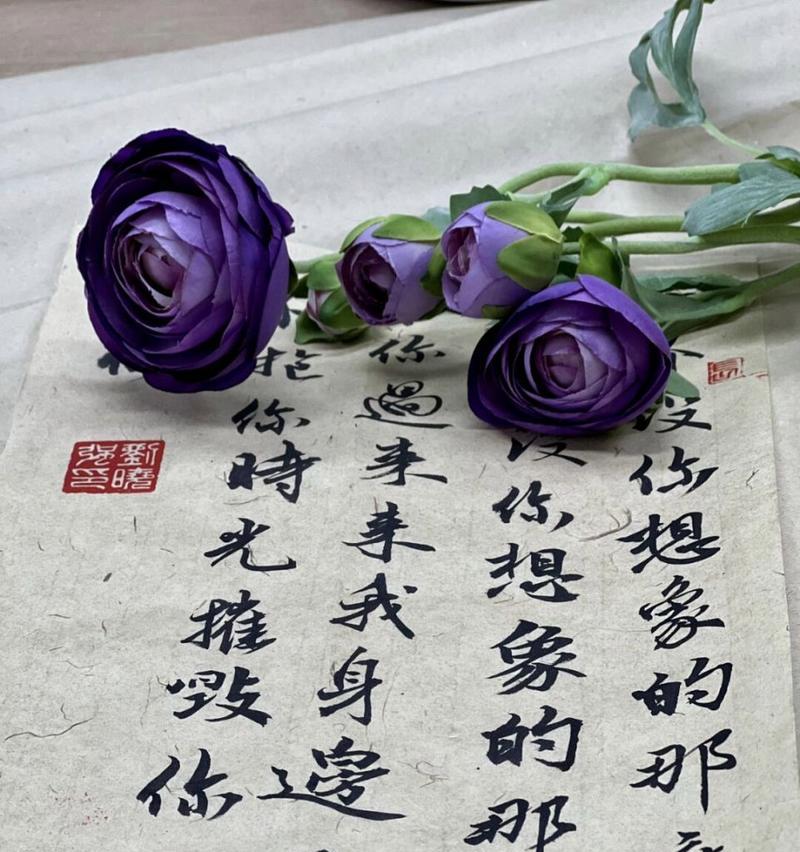 没你想象的那
没你想象的那
你過来来我身邊
抱你時光摧毁你
劉曉強印